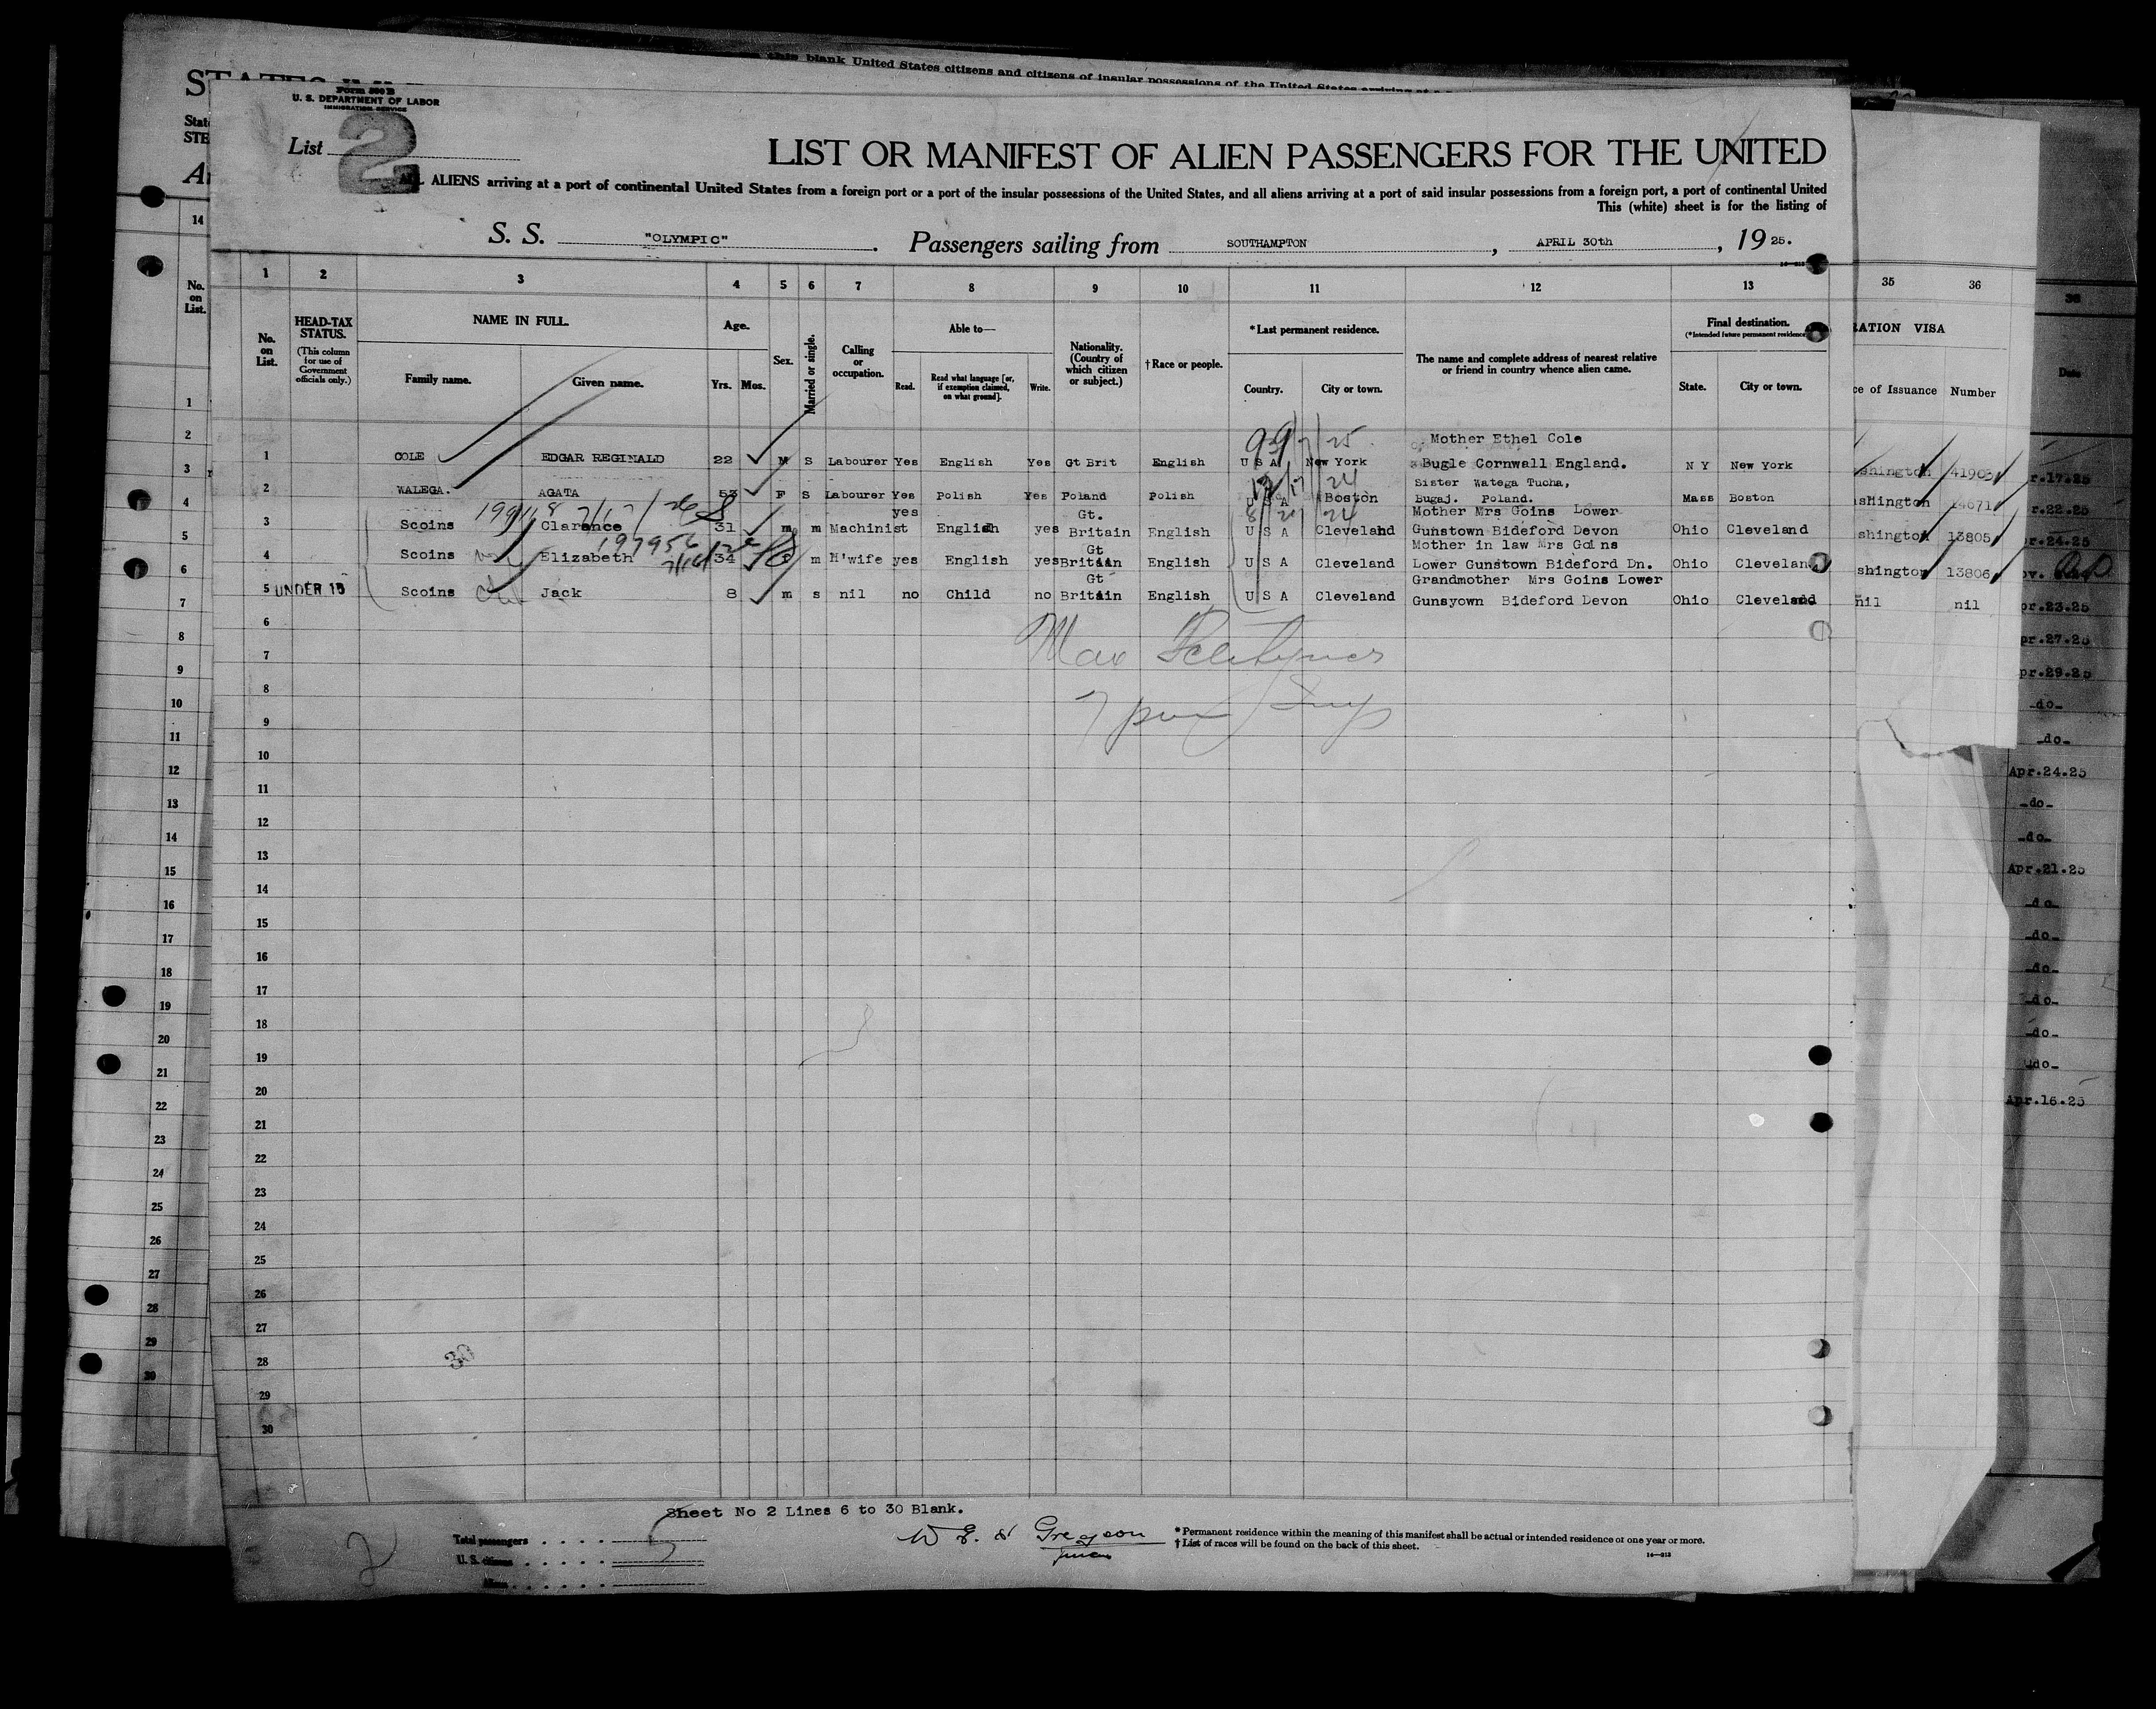 this blank United States citizens and citizens of insular possessions of the United States arriving at a
Form 500 B
U. S. DEPARTMENT OF LABOR
IMMIGRATION SERVICE
List 2
LIST OR MANIFEST OF ALIEN PASSENGERS FOR THE UNITED
ALL ALIENS arriving at a port of continental United States from a foreign port or a port of the insular possessions of the United States, and all aliens arriving at a port of said insular possessions from a foreign port, a port of continental United
This (white) sheet is for the listing of
S. S. "OLYMPIC". Passengers sailing from SOUTHAMPTON, APRIL 30th, 1925.
1 2 3 4 5 6 7 8 9 10 11 12 13
No. on List.
HEAD-TAX STATUS.
(This column for use of Government officials only.)
NAME IN FULL.
Family name. Given name.
Age.
Yrs. Mos.
Sex.
Married or single.
Calling or occupation.
Able to—
Read. Read what language [or, if exemption claimed, on what ground]. Write.
Nationality. (Country of which citizen or subject.)
†Race or people.
*Last permanent residence.
Country. City or town.
The name and complete address of nearest relative or friend in country whence alien came.
Final destination.
(*Intended future permanent residence)
State. City or town.
35 36
RATION VISA
ce of Issuance Number
Date
Mother Ethel Cole
1 COLE EDGAR REGINALD 22 M S Labourer Yes English Yes Gt Brit English U S A New York Bugle Cornwall England. N Y New York shington 41903
Sister Watega Tucha,
2 WALEGA. AGATA 53 F S Labourer Yes Polish Yes Poland Polish U S A Boston Bugaj. Poland. Mass Boston shington 14671
yes Gt. Mother Mrs Goins Lower
3 Scoins Clarence 31 m m Machinist English yes Britain English U S A Cleveland Gunstown Bideford Devon Ohio Cleveland shington 13805
Gt Mother in law Mrs Goins
4 Scoins Elizabeth 34 f m H'wife yes English yes Britain English U S A Cleveland Lower Gunstown Bideford Dn. Ohio Cleveland shington 13806
Gt Grandmother Mrs Goins Lower
5 UNDER 16 Scoins Jack 8 m s nil no Child no Britain English U S A Cleveland Gunsyown Bideford Devon Ohio Cleveland nil nil
6
7
8
9
10
11
12
13
14
15
16
17
18
19
20
21
22
23
24
25
26
27
28
29
30
30
r.17.25
r.22.25
r.24.25
ov.
pr.23.25
pr.27.25
pr.29.25
-do-
-do-
Apr.24.25
-do-
-do-
Apr.21.25
-do-
-do-
-do-
-do-
-do-
-do-
Apr.16.25
Sheet No 2 Lines 6 to 30 Blank.
Total passengers
U. S. citizens
Aliens
2
*Permanent residence within the meaning of this manifest shall be actual or intended residence of one year or more.
†List of races will be found on the back of this sheet.